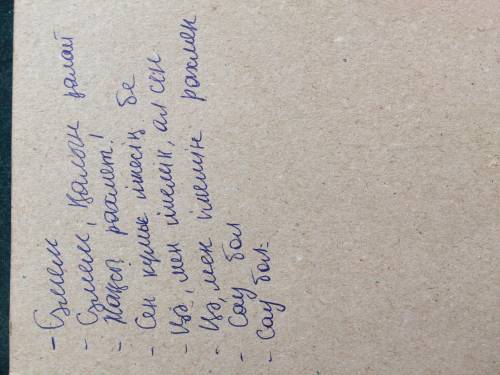 - Сәлем
- Сәлем, Қалың қалай
- Жақсы рахмет!
- Сен құмыс ішесің бе
- Иә, мен ішемін, ал сен
- Иә, мен ішемін рахмен
- Сау бол
- Сау бол.